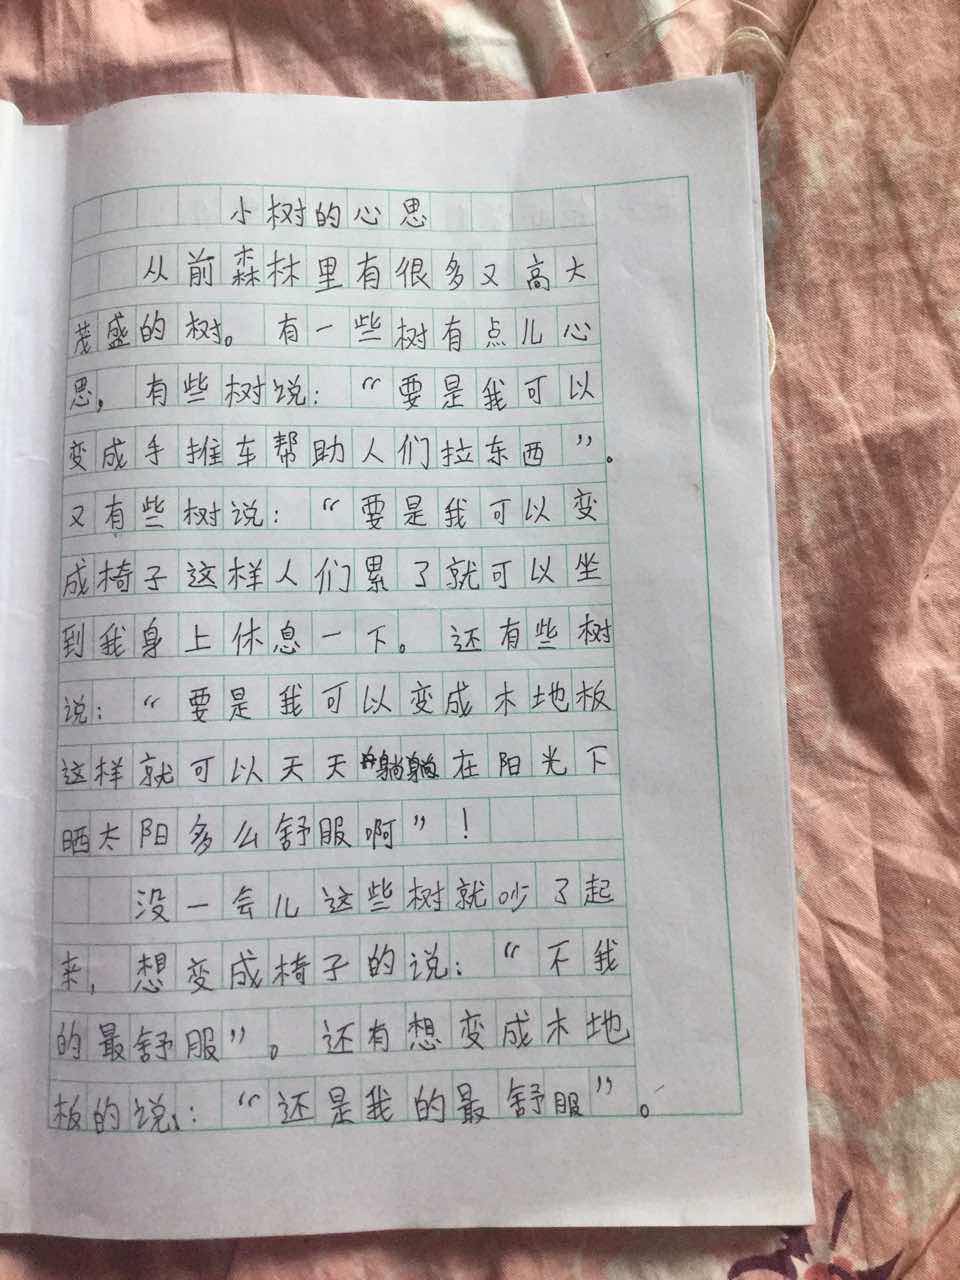 小树的心思
从前森林里有很多又高大
茂盛的树。有一些树有点儿心
思，有些树说：“要是我可以
变成手推车帮助人们拉东西”。
又有些树说：“要是我可以变
成椅子这样人们累了就可以坐
到我身上休息一下。还有些树
说：“要是我可以变成木地板
这样就可以天天躺躺在阳光下
晒太阳多么舒服啊”！
没一会儿这些树就吵了起
来，想变成椅子的说：“不我
的最舒服”。还有想变成木地
板的说：“还是我的最舒服”。